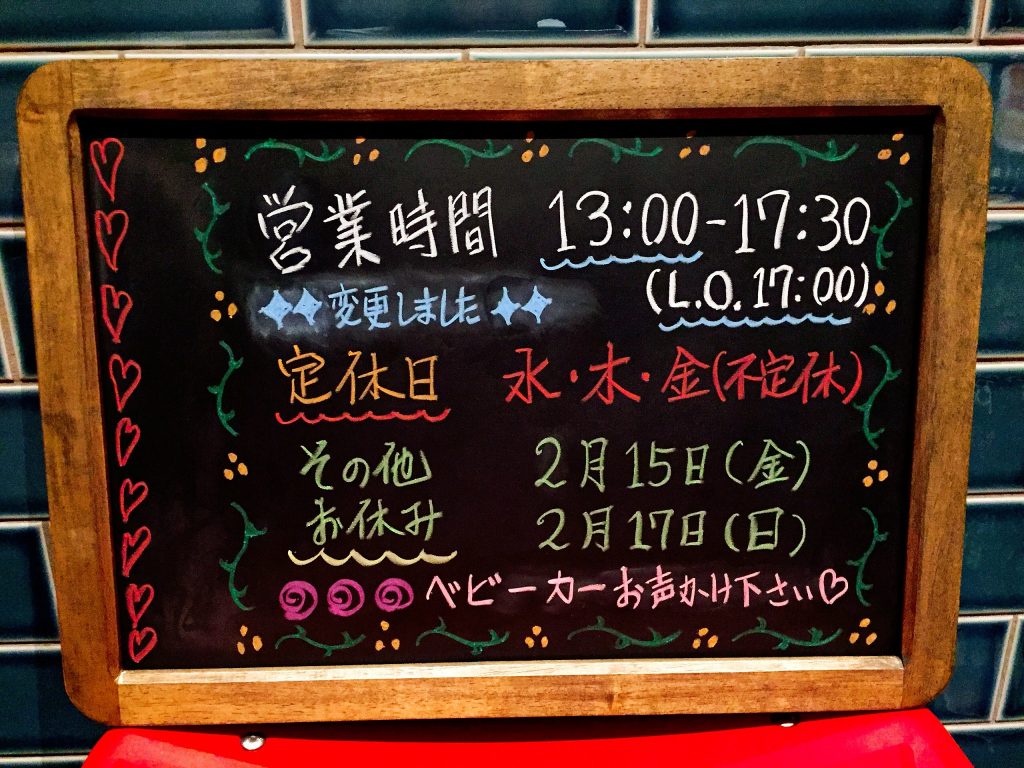 営業時間 13:00-17:30
(L.O. 17:00)
変更しました
定休日 水・木・金(不定休)
その他 2月15日(金)
お休み 2月17日(日)
ベビーカーお声かけ下さい